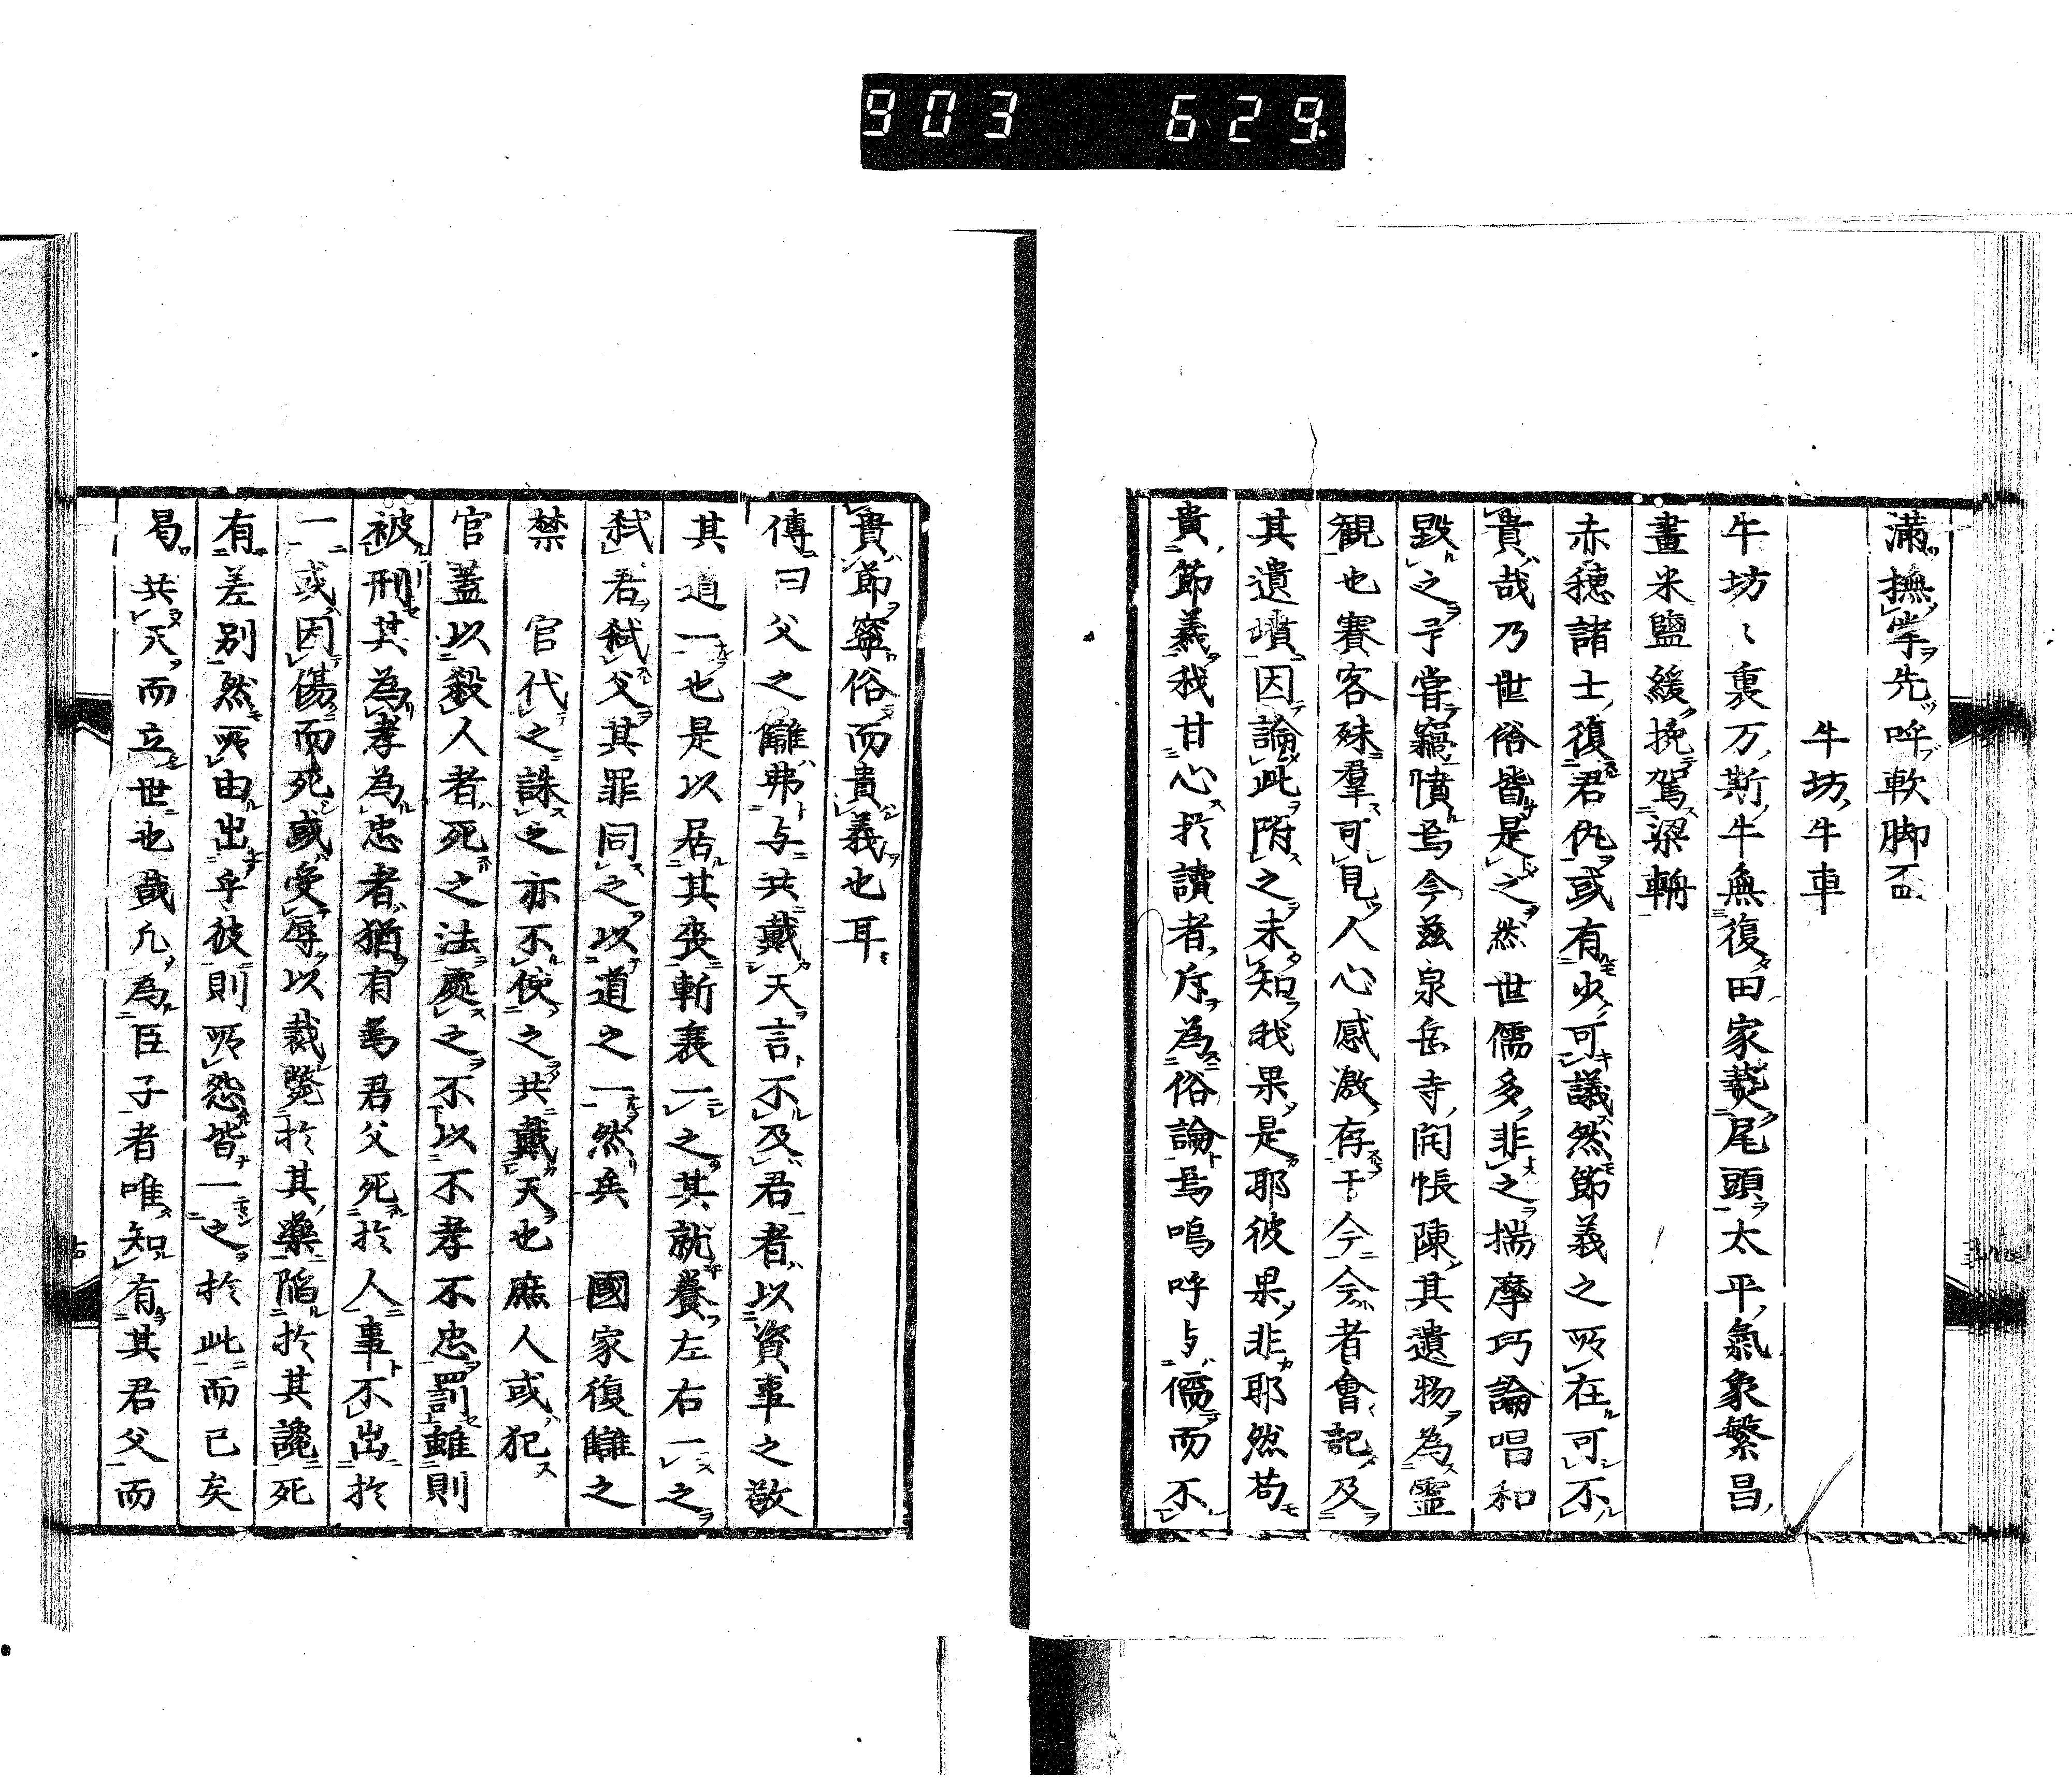 903 629.
滿撫掌先呼軟脚盃
牛坊牛車
牛坊〻裏万斯牛無復田家爇尾頭太平氣象繁昌
畫米鹽緩挽駕梁輈
赤穗諸士復君仇或有少可議然節義之所在可不
貴哉乃世俗皆是之然世儒多非之揣摩巧論唱和
毀之予嘗竊憤焉今茲泉岳寺開帳陳其遺物為霊
觀也賽客殊羣可見人心感激存于今今者會記及
其遺墳因論此附之未知我果是耶彼果非耶然苟
貴節義我甘心於讀者斥為俗論焉嗚呼与儒而不
貴節寧俗而貴義也耳
傳曰父之讎弗与共戴天言不及君者以資事之敬
其道一也是以居其喪斬衰一之其就養左右一之
弑君弑父其罪同之以道之一然矣 國家復讎之
禁 官代之誅之亦不使之共戴天也庶人或犯
官蓋以殺人者死之法處之不以不孝不忠罰雖則
被刑其為孝為忠者猶有焉君父死於人事不出於
一或因傷而死或受辱以裁斃於其藥陷於其讒死
有差別然所由出乎彼則所怨皆一之於此而已矣
曷共天而立世也哉凡為臣子者唯知有其君父而